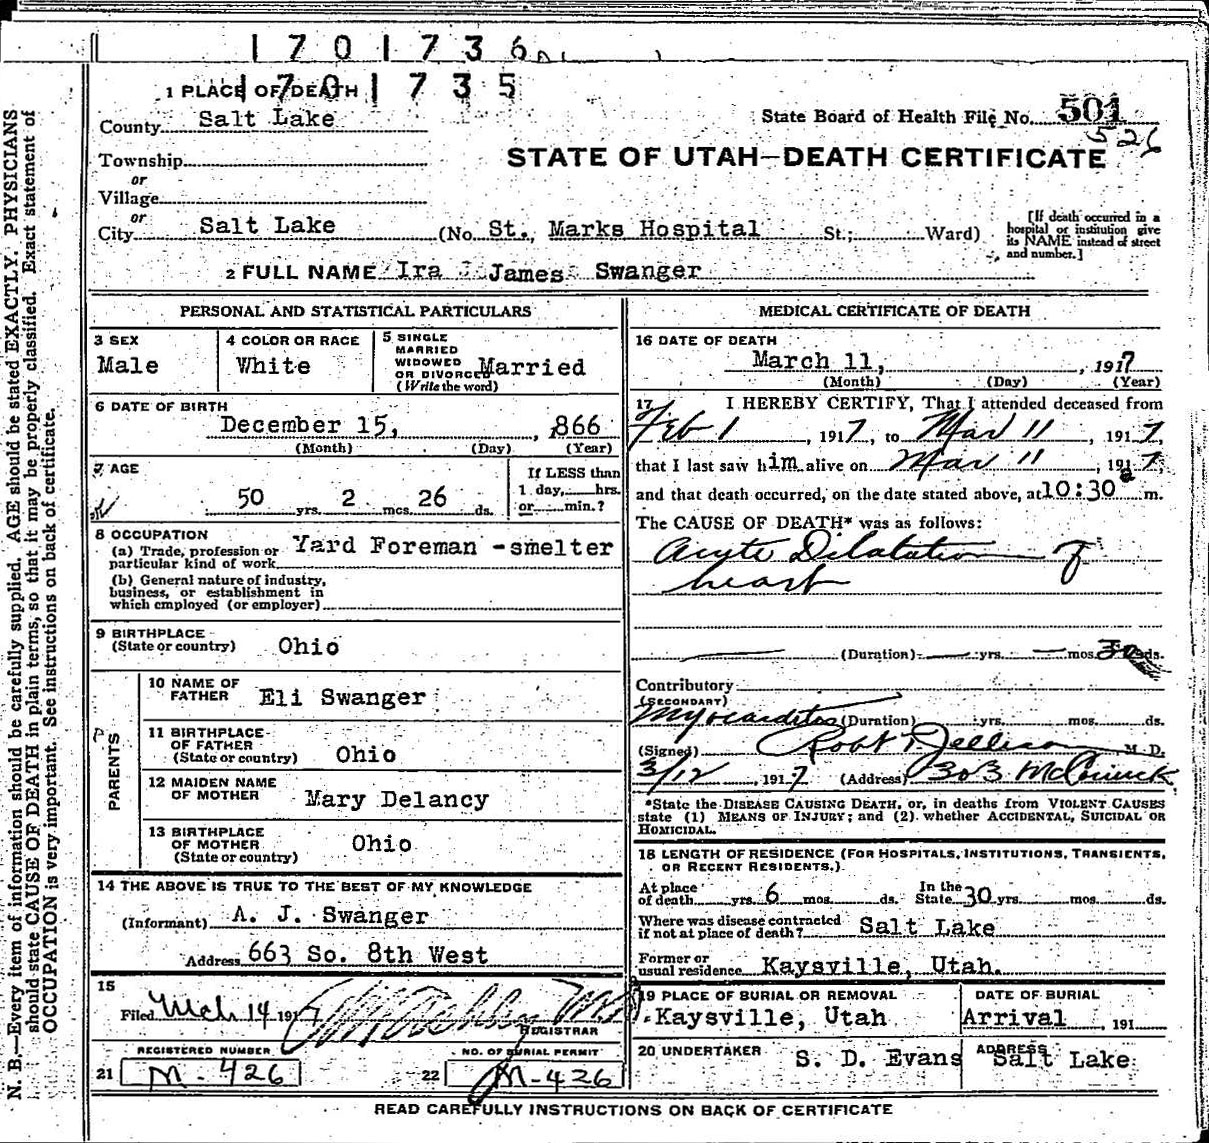 1701736
1701735
1 PLACE OF DEATH
State Board of Health File No. 501
526
County Salt Lake
STATE OF UTAH—DEATH CERTIFICATE
Township
or
Village
or
City Salt Lake (No. St. Marks Hospital St.; Ward)
[If death occurred in a hospital or institution give its NAME instead of street and number.]
2 FULL NAME Ira James Swanger
PERSONAL AND STATISTICAL PARTICULARS
3 SEX
Male
4 COLOR OR RACE
White
5 SINGLE
MARRIED
WIDOWED
OR DIVORCED Married
(Write the word)
6 DATE OF BIRTH
December 15, , 1866
(Month) (Day) (Year)
7 AGE
50 yrs. 2 mos. 26 ds.
If LESS than
1 day, hrs.
or min.?
8 OCCUPATION
(a) Trade, profession or
particular kind of work Yard Foreman -smelter
(b) General nature of industry,
business, or establishment in
which employed (or employer)
9 BIRTHPLACE
(State or country) Ohio
PARENTS
10 NAME OF
FATHER Eli Swanger
11 BIRTHPLACE
OF FATHER
(State or country) Ohio
12 MAIDEN NAME
OF MOTHER Mary Delancy
13 BIRTHPLACE
OF MOTHER
(State or country) Ohio
14 THE ABOVE IS TRUE TO THE BEST OF MY KNOWLEDGE
(Informant) A. J. Swanger
Address 663 So. 8th West
15
Filed Mch 14 1917
REGISTRAR
REGISTERED NUMBER
21 M-426
NO. OF BURIAL PERMIT
22 M-426
MEDICAL CERTIFICATE OF DEATH
16 DATE OF DEATH
March 11, , 1917
(Month) (Day) (Year)
17 I HEREBY CERTIFY, That I attended deceased from
Feb 1 , 1917, to Mar 11 , 1917,
that I last saw him alive on Mar 11 , 1917
and that death occurred, on the date stated above, at 10:30 a m.
The CAUSE OF DEATH* was as follows:
Acute Dilatation of
heart
(Duration) yrs. mos. 30 ds.
Contributory
(SECONDARY)
Myocarditis (Duration) yrs. mos. ds.
(Signed) Robt T. Jellison M D.
3/12 , 1917 (Address) 303 McCornick
*State the DISEASE CAUSING DEATH, or, in deaths from VIOLENT CAUSES
state (1) MEANS OF INJURY; and (2) whether ACCIDENTAL, SUICIDAL OR
HOMICIDAL.
18 LENGTH OF RESIDENCE (FOR HOSPITALS, INSTITUTIONS, TRANSIENTS,
OR RECENT RESIDENTS.)
At place
of death yrs. 6 mos. ds. In the
State 30 yrs. mos. ds.
Where was disease contracted
if not at place of death? Salt Lake
Former or
usual residence Kaysville, Utah.
19 PLACE OF BURIAL OR REMOVAL
Kaysville, Utah
DATE OF BURIAL
Arrival , 191
20 UNDERTAKER S. D. Evans
ADDRESS
Salt Lake
READ CAREFULLY INSTRUCTIONS ON BACK OF CERTIFICATE
N. B.—Every item of information should be carefully supplied. AGE should be stated EXACTLY. PHYSICIANS
should state CAUSE OF DEATH in plain terms, so that it may be properly classified. Exact statement of
OCCUPATION is very important. See instructions on back of certificate.